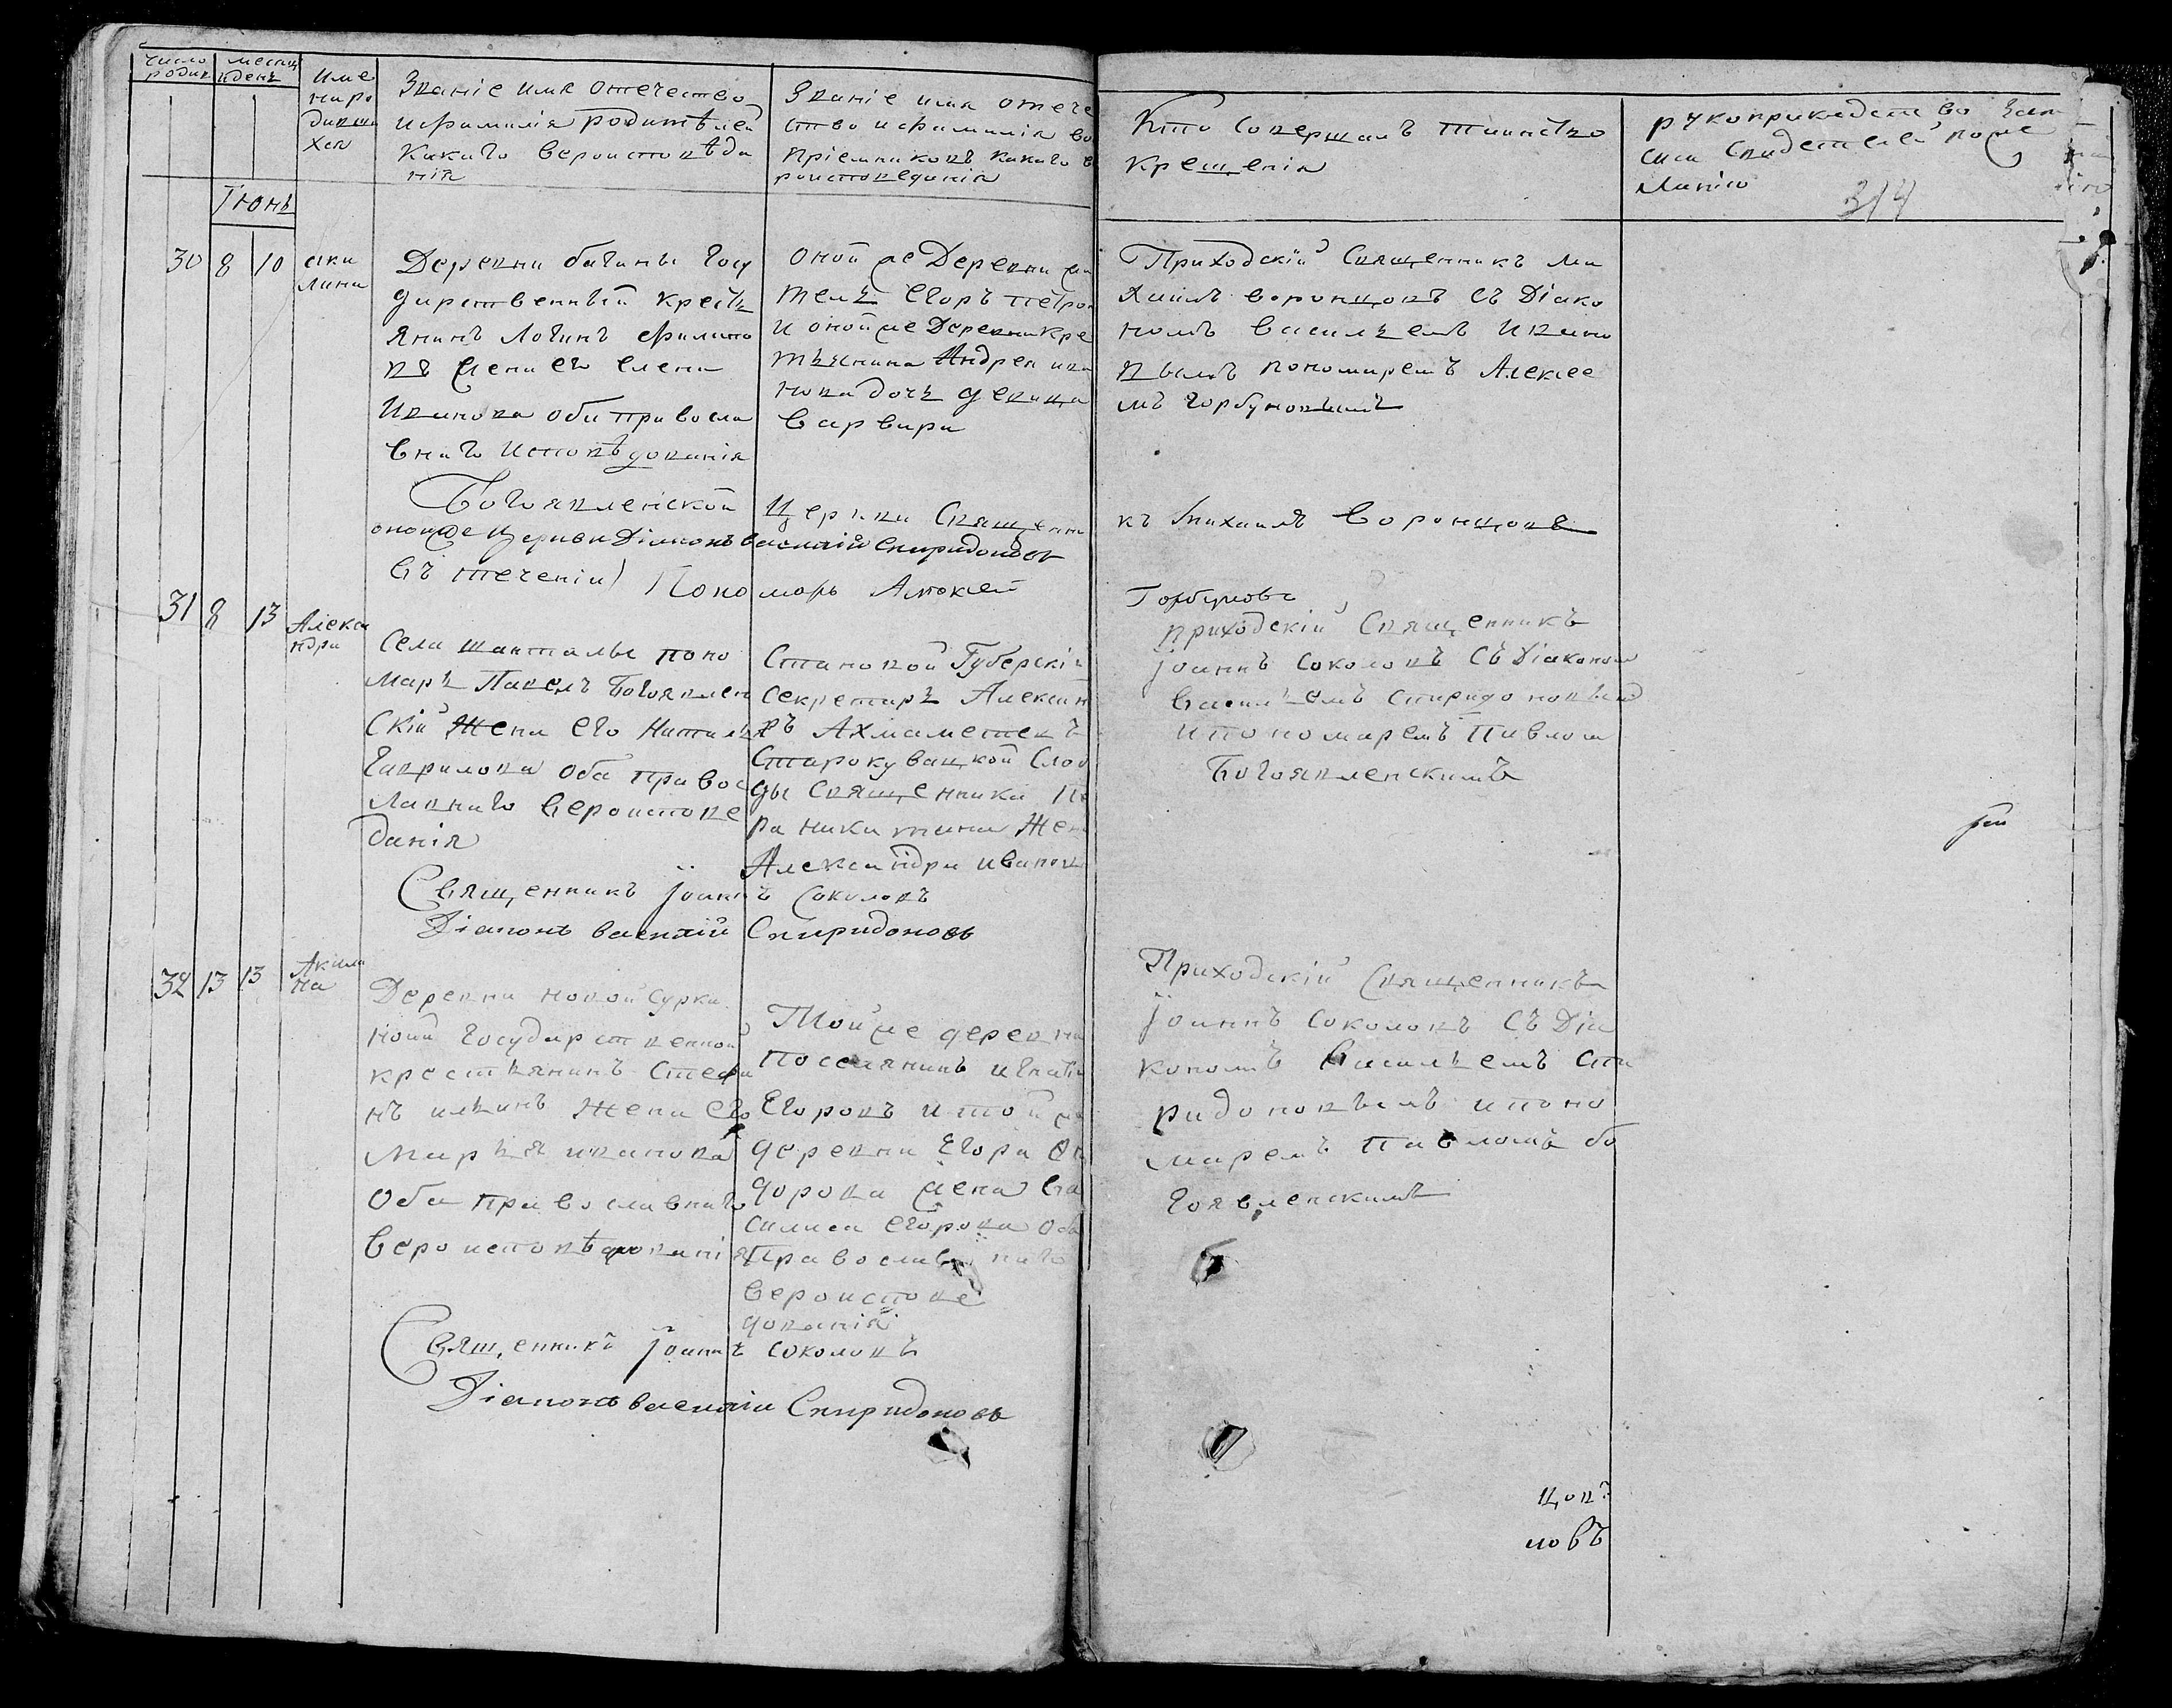 число родив
месяц и день
име
на ро
дивши
хся
Званіе имя отечество
и фамилія родитѣлей
какаго вероисповѣда
нія
Званіе имя отече
ство и фамилія во
пріемниковъ какаго в
роисповеданія
Кто Совершалъ таинство
крещенія
рукоприкладство
свидетелей по же
ланію
314
Іюнь
30 8 10 аки
лина
Деревни багины госу
дарственный кресть
янинъ Логинъ Филипо
въ жена его елена
Иванова оба правосла
внаго исповѣдованія
оной же Деревни жи
тель Егоръ петров
и оной же Деревни кре
тьянина Андрея ива
нова дочь девица
варвара
Приходскій Священникъ ми
хаилъ воронцовъ съ Діако
номъ васильемъ Ивано
вымъ пономаремъ Алексее
мъ горбуновымъ
Богоявленской Церкви Священни
къ михаилъ Воронцовъ
оной же Церкви Діаконъ василій Спиридоновъ
въ течении Пономарь Алексей
Горбуновъ
31 8 13 Алекса
ндра
Села шанталы поно
марь Павелъ Богоявлен
скій Жена его Наталья
Гаврилова оба правос
лавнаго вероиспове
данія
Становой Губерскій
секретарь Александ
ръ Ахмаметевъ
Старокувацкой Слоо
ды Священника Пе
ра никитина Жена
Александра иванова
приходскій Священникъ
Іоаннъ соколовъ съ Діакономъ
васильемъ спиридоновым
и пономаремъ Павлом
Богоявленскимъ
Священникъ Іоаннъ Соколовъ
Діаконъ василій Спиридоновъ
32 13 13 Акили
на
Деревни новой сурки
ной государственной
крестьянинъ Стефа
нъ ильинъ жена его
марья иванова
оба православнаго
вероисповѣдованія
Той же деревни
поселянинъ игнатій
Егоровъ и той же
деревни Егора Фе
дорова жена ва
силиса егорова оба
Православнаго
вероиспове
дованія
Приходскій Священникъ
Іоаннъ соколовъ съ Діа
кономъ васильемъ спи
ридоновымъ и поно
маремъ павломъ бо
гоявленскимъ
Священникъ Іоаннъ соколовъ
Діаконъ василіи Спиридоновъ
цовъ
новъ